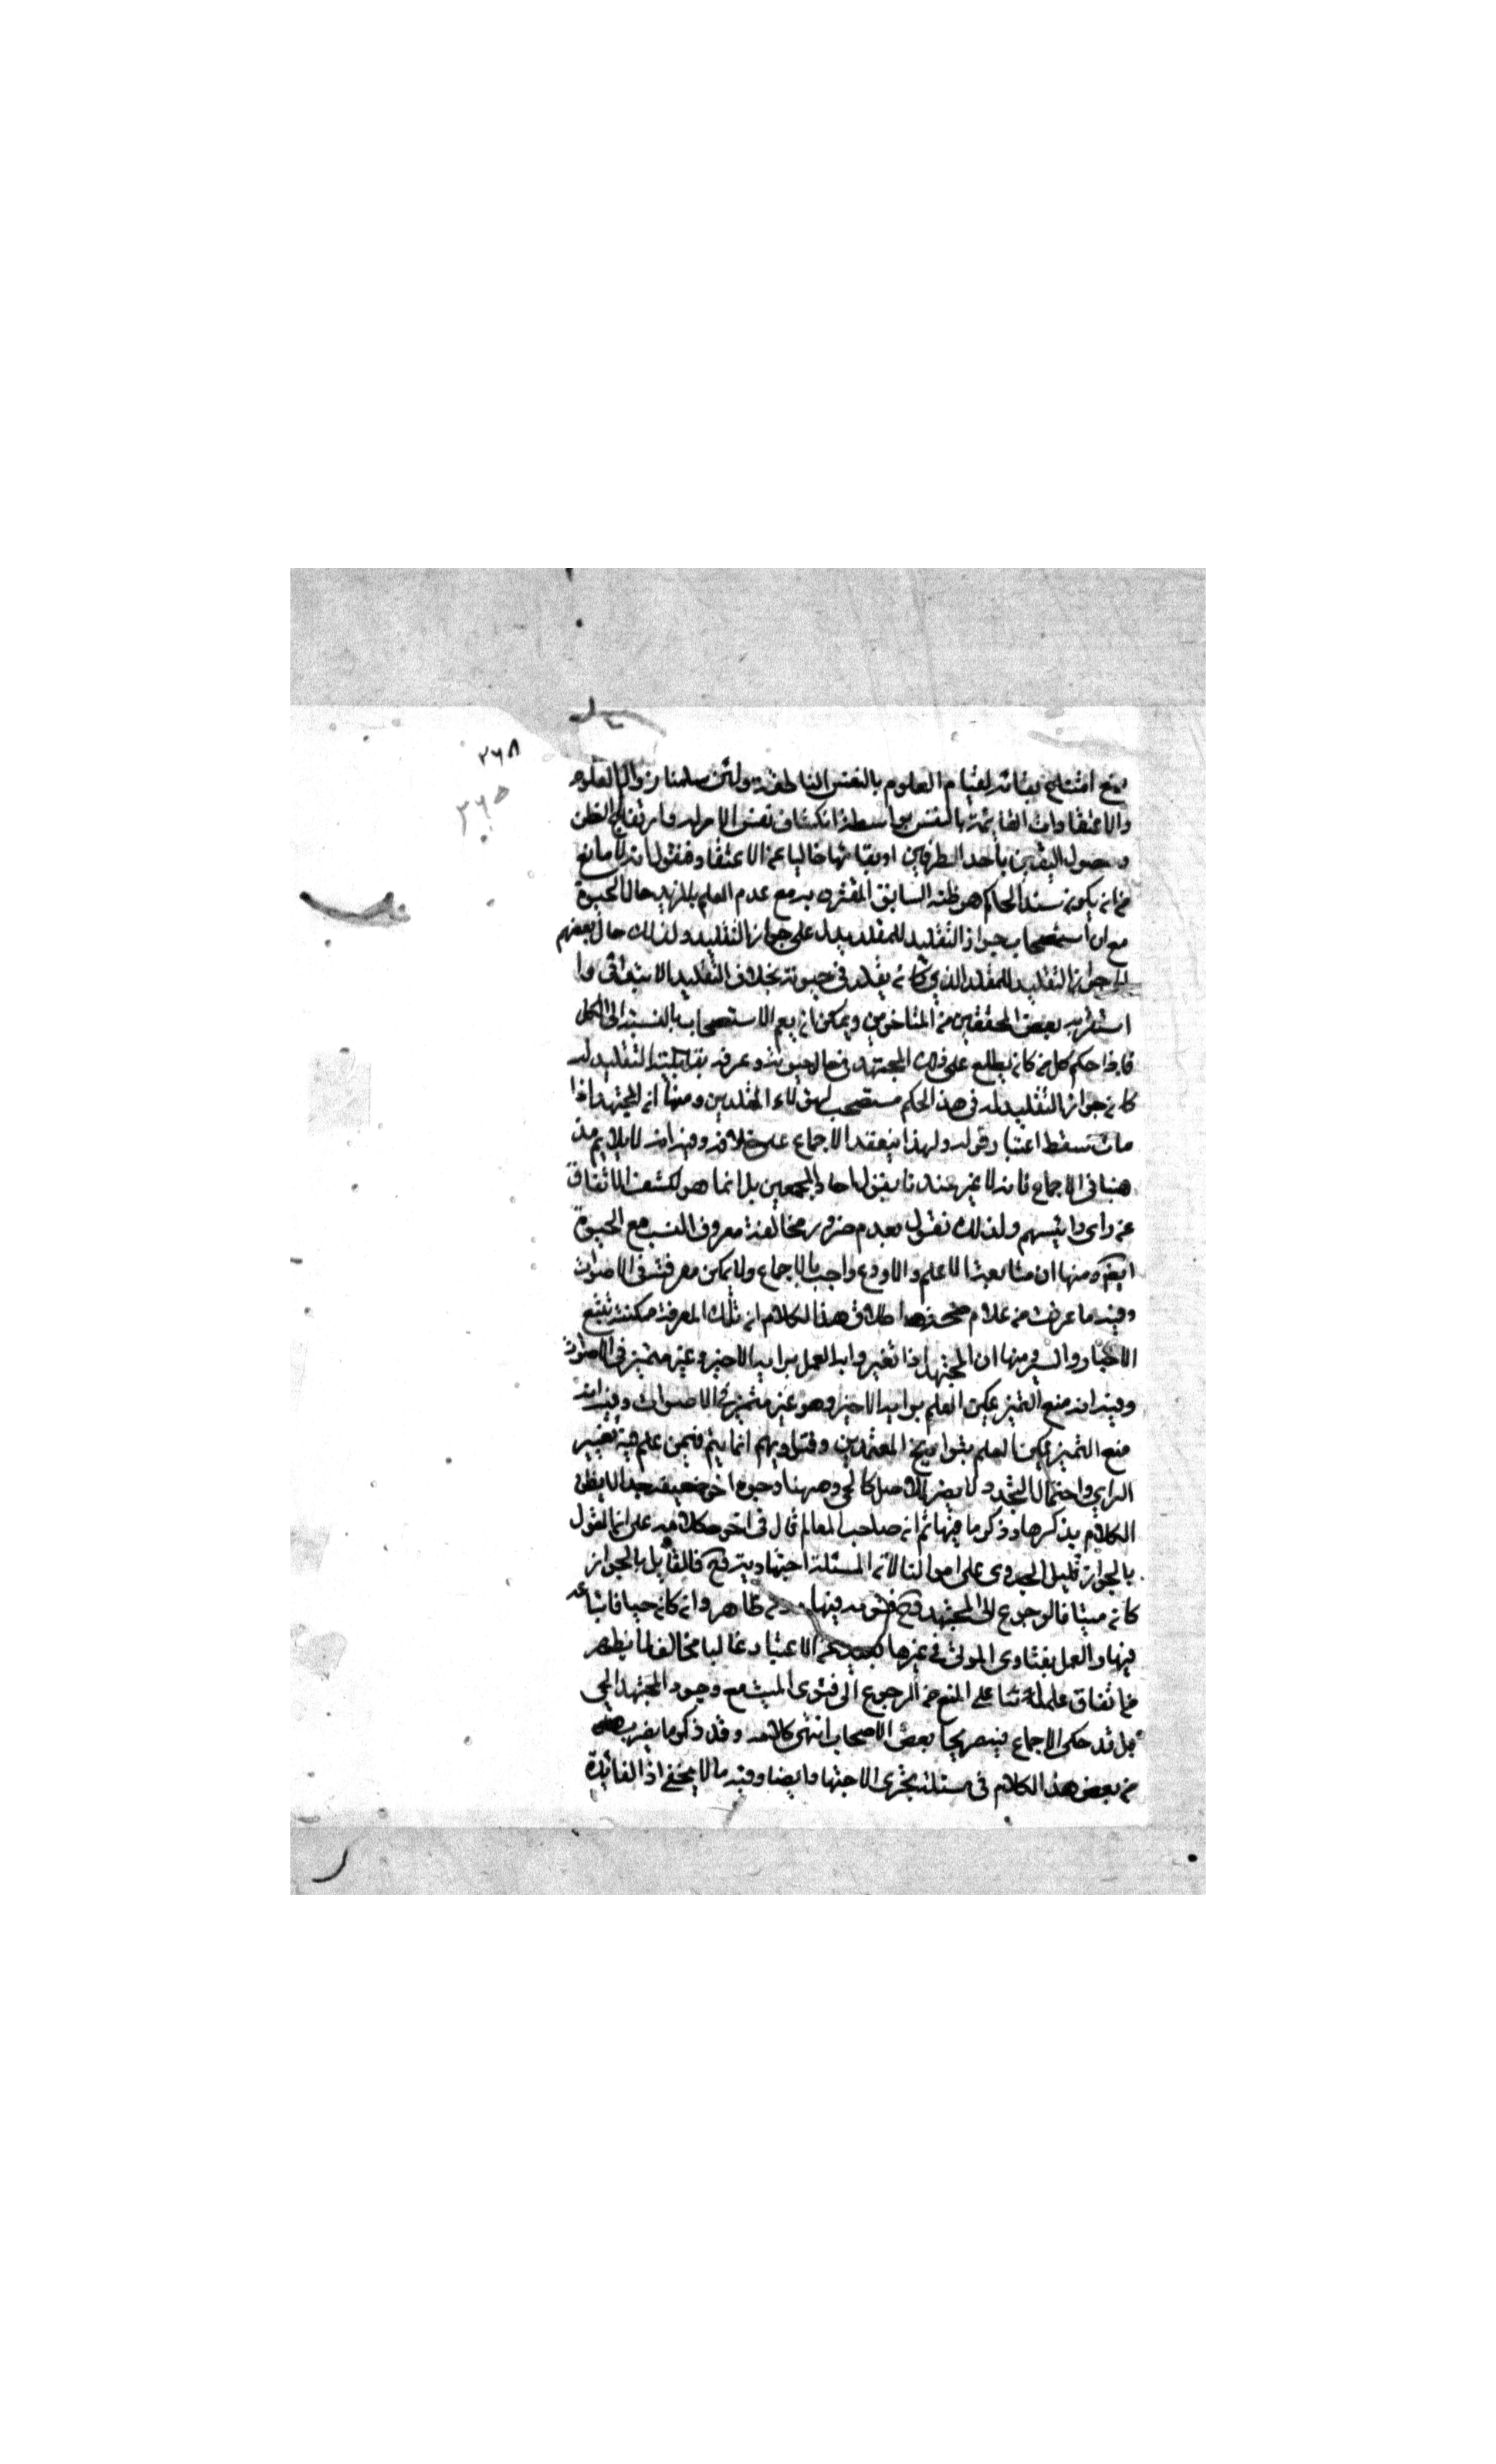 ٢٦٨
٣٦٥
منع امتناع بقائه لقيام العلوم بالنفس الناطقة ولئن سلمنا زوال العلوم
والاعتقادات القائمة بالنفس بواسطة انكشاف نفس الامر له فارتفاع الظن
وحصول اليقين باحد الطرفين او بقائها خاليا عن الاعتقاد فنقول انه لا مانع
من ان يكون سند الحكم هو ظنه السابق المقترن به مع عدم العلم بالمزيد حال الحيوة
مع ان استصحاب جواز التقليد للمقلد يدل على جواز التقليد ولذلك مال بعضهم
الى جواز التقليد للمقلد الذي كان يقلده في حيوته بخلاف التقليد الابتدائي وا
استقربه بعض المحققين من المتاخرين ويمكن ان يعم الاستصحاب بالنسبة الى الكل
فاذا حكم كل من كان يطلع على قول المجتهد في حال حيوته وعرف بقابلية التقليد له
كان جواز التقليد له في هذا الحكم مستصحب لهؤلاء المقلدين ومنها ان المجتهد اذا
مات سقط اعتبار قوله ولهذا ينعقد الاجماع على خلافه وفيه انه لا يلايم مذ
هبنا في الاجماع فانه لا عبرة عندنا بقول احاد المجمعين بل انما هو لكشف الاتفاق
عن راي رئيسهم ولذلك نقول بعدم ضرر مخالفة معروف النسب مع الحيوة
ايضا ومنها ان متابعة الاعلم والاورع واجب بالاجماع ولا يمكن معرفته في الاموات
وفيه ما عرفت من هذا الكلام ان تلك المعرفة ممكنة بتتبع
الاخبار والسير ومنها ان المجتهد اذا تغير رايه العمل برايه الاخير وغير متميز في الاموات
وفيه انه منع التميز يمكن العلم برايه الاخير وهو غير متميز في الاموات وفيه انه
منع التميز يمكن العلم بتواريخ المعتمدين وفتاويهم انما يتم فيمن علم فيه تغيير
الراي واحتمال التجدد لا يضر للاصل كالحي وههنا وجوه اخر ضعيفة جدا لا يطن
الكلام بذكرها وذكر ما فيها ثم ان صاحب المعالم قال في اخر كلامه على ان القول
بالجواز قليل الجدوى على اصولنا لان المسئلة اجتهادية وح فالقايل بالجواز
كان ميتا فالرجوع الى المجتهد وح فتويه فيها ظاهر وان كان حيا فاتباعه
فيها والعمل بفتاوى الموتى في غيرها بعيد عن الاعتبار غالبا مخالف لما يظهر
من اتفاق علمائنا على المنع من الرجوع الى فتوى الميت مع وجود المجتهد الحي
بل قد حكى الاجماع فيه صريحا بعض الاصحاب انتهى كلامه وقد ذكر ما يقرب
من بعض هذا الكلام في مسئلة تجزى الاجتهاد ايضا وفيه ما لا يخفى اذ الفائدة